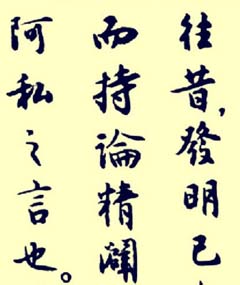 往昔，發明已
而持論精闢
阿私之言也。